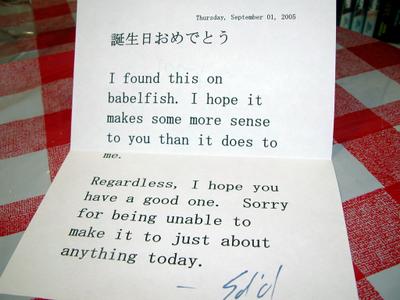 Thursday, September 01, 2005
誕生日おめでとう
I found this on
babelfish. I hope it
makes some more sense
to you than it does to
me.
Regardless, I hope you
have a good one. Sorry
for being unable to
make it to just about
anything today.